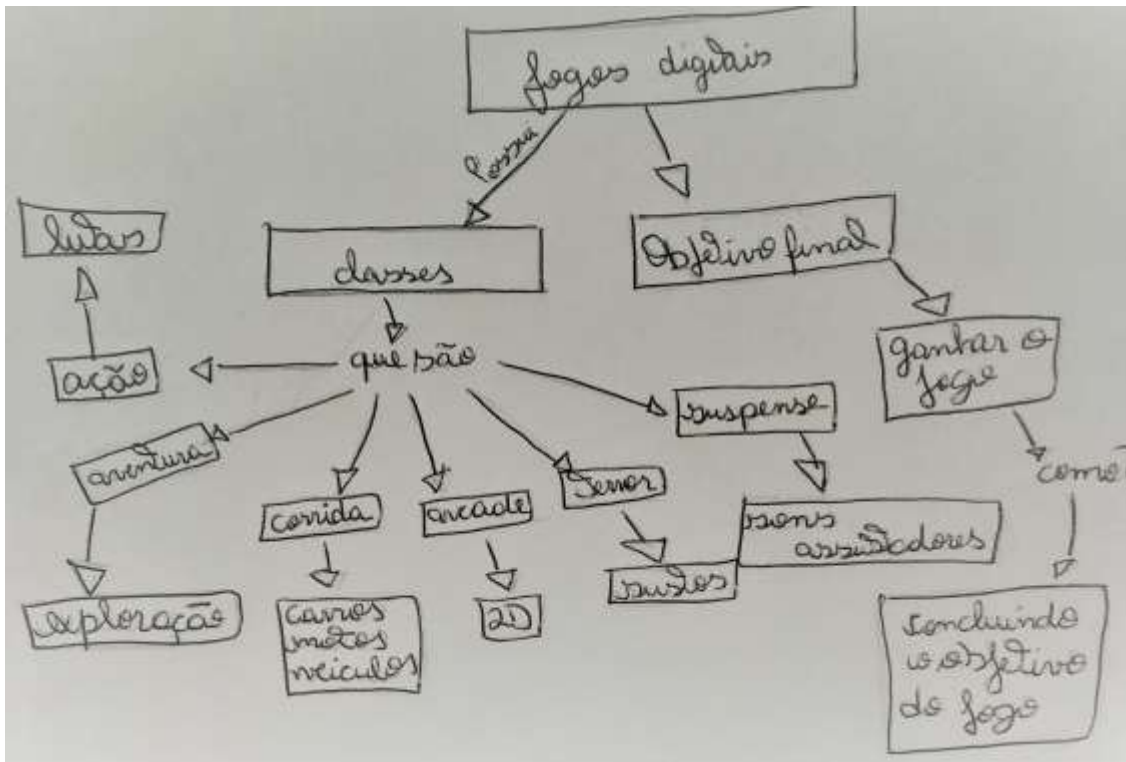 Jogos digitais
Possui
lutas
classes
Objetivo final
ação
que são
ganhar o
jogo
suspense
aventura
como
corrida
arcade
Terror
sons
assustadores
exploração
carros
motos
veiculos
2D
sustos
concluindo
o objetivo
do jogo